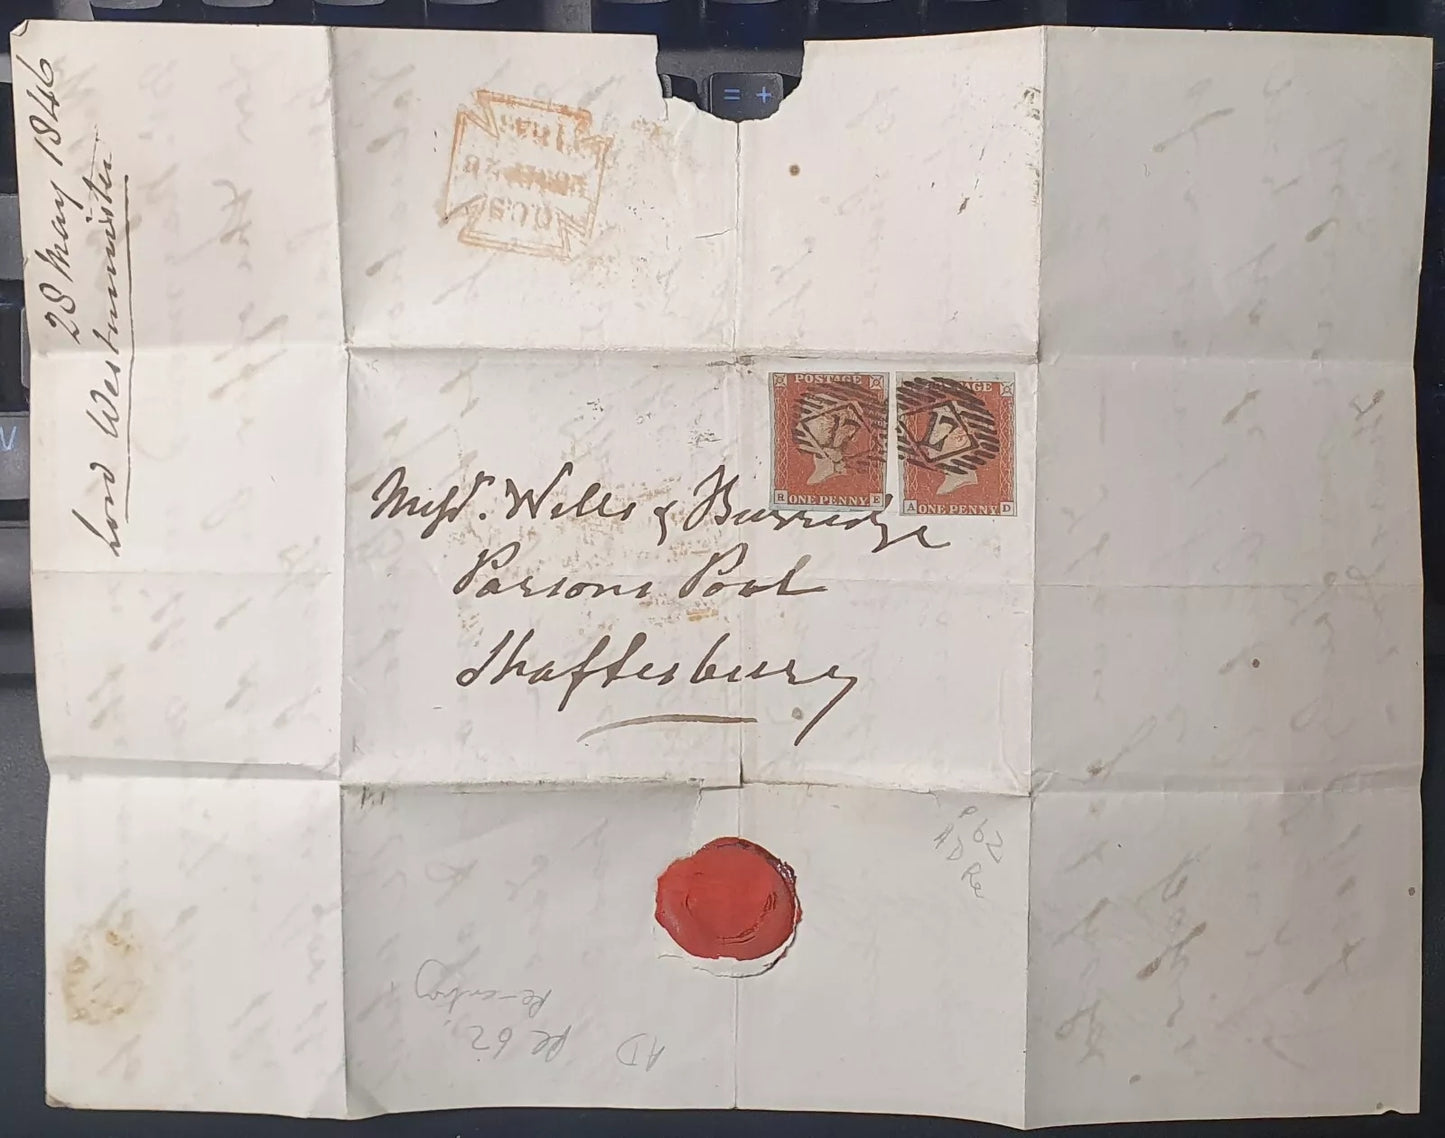 28 May 1846
Lord Westminster
Messrs. Wells & Burridge
Parsons Pool
Shaftesbury
POSTAGE
17
R ONE PENNY E
17
A ONE PENNY D
P 62
AD
Re
Re-entry
Pl 62.
AD
= +